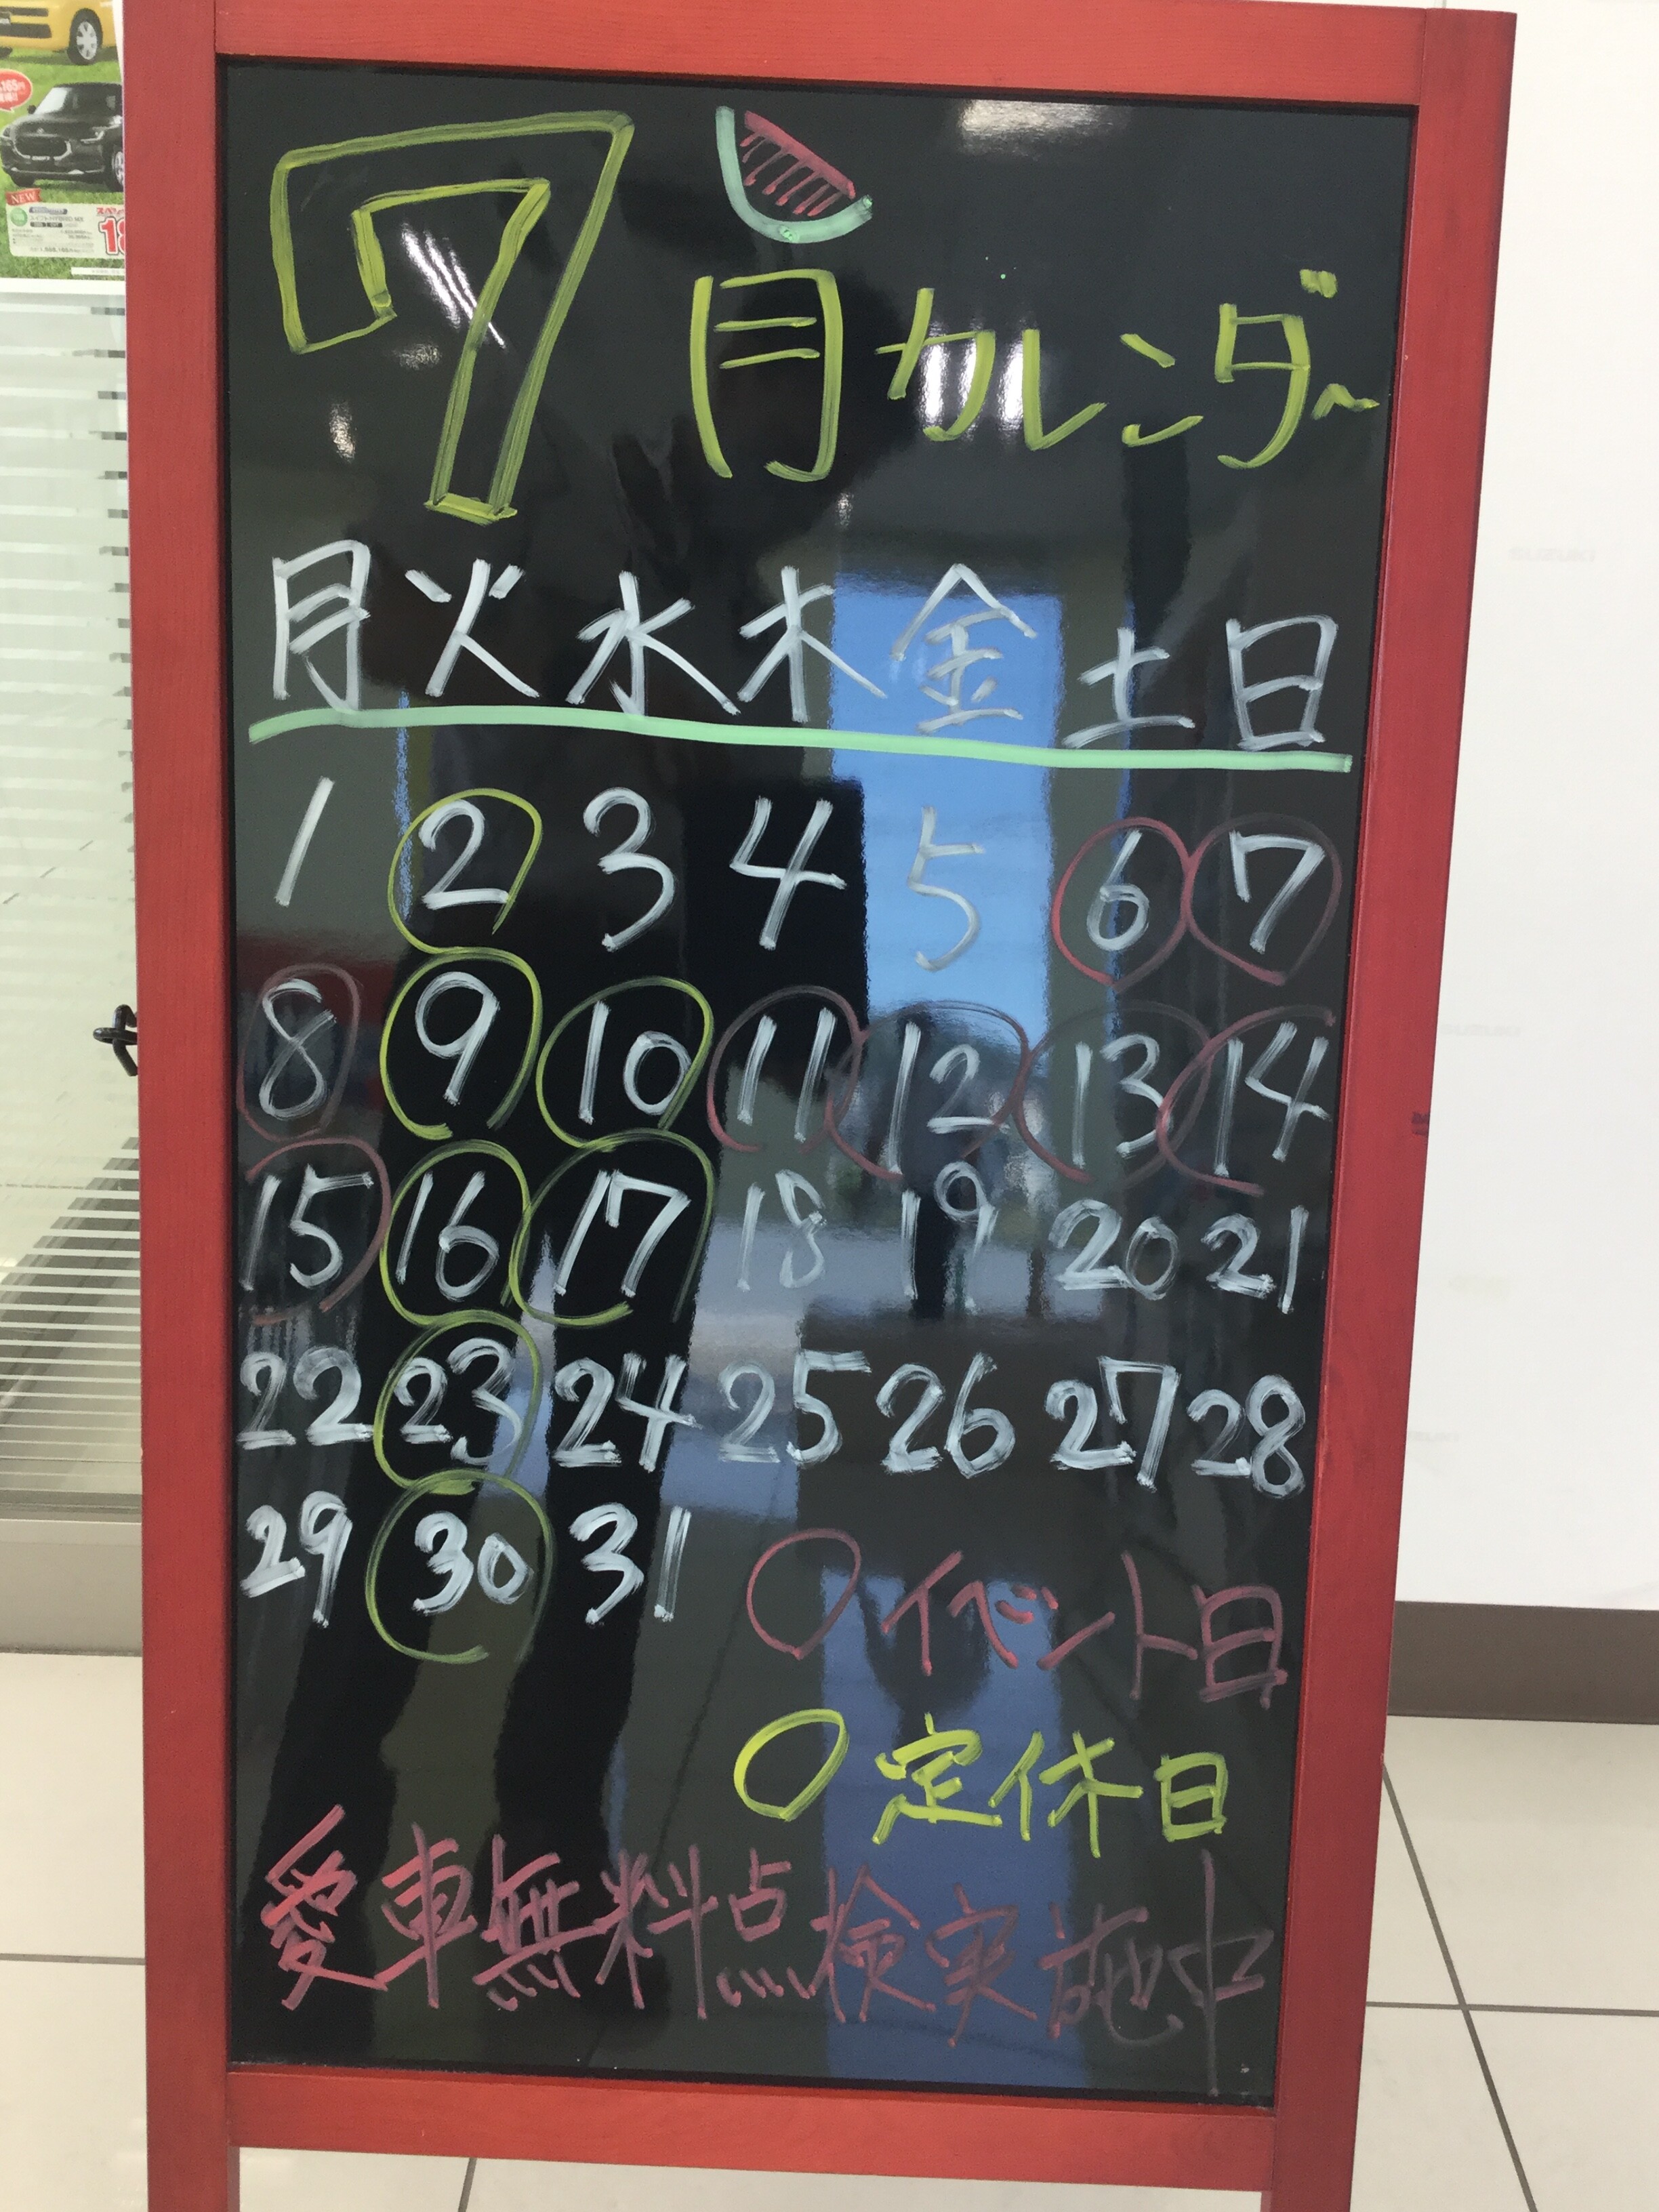 7月カレンダー
月 火 水 木 金 土 日
1 2 3 4 5 6 7
8 9 10 11 12 13 14
15 16 17 18 19 20 21
22 23 24 25 26 27 28
29 30 31
○イベント日
○定休日
愛車無料点検実施中
NEW
SUZUKI